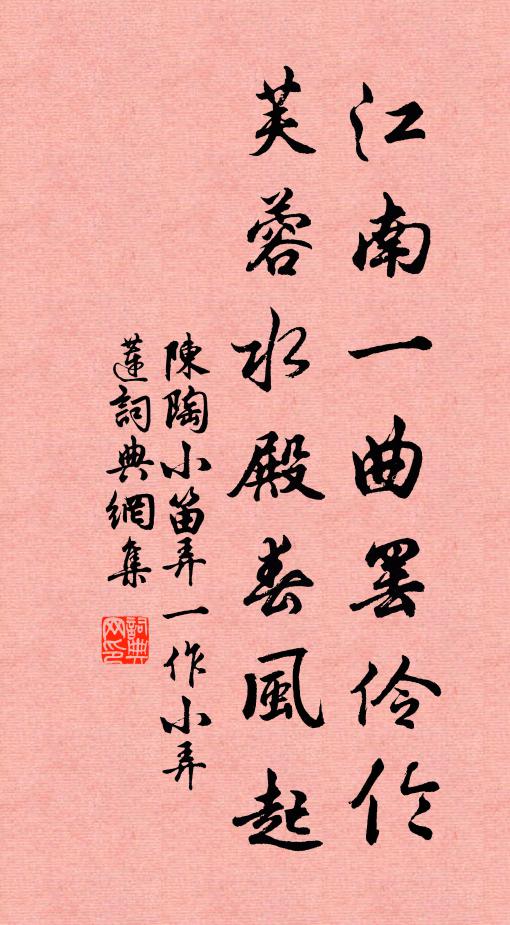 江南一曲罢伶伦
芙蓉水殿春風起
陳陶小笛弄一作小弄
蓮詞典網集
詞典网印